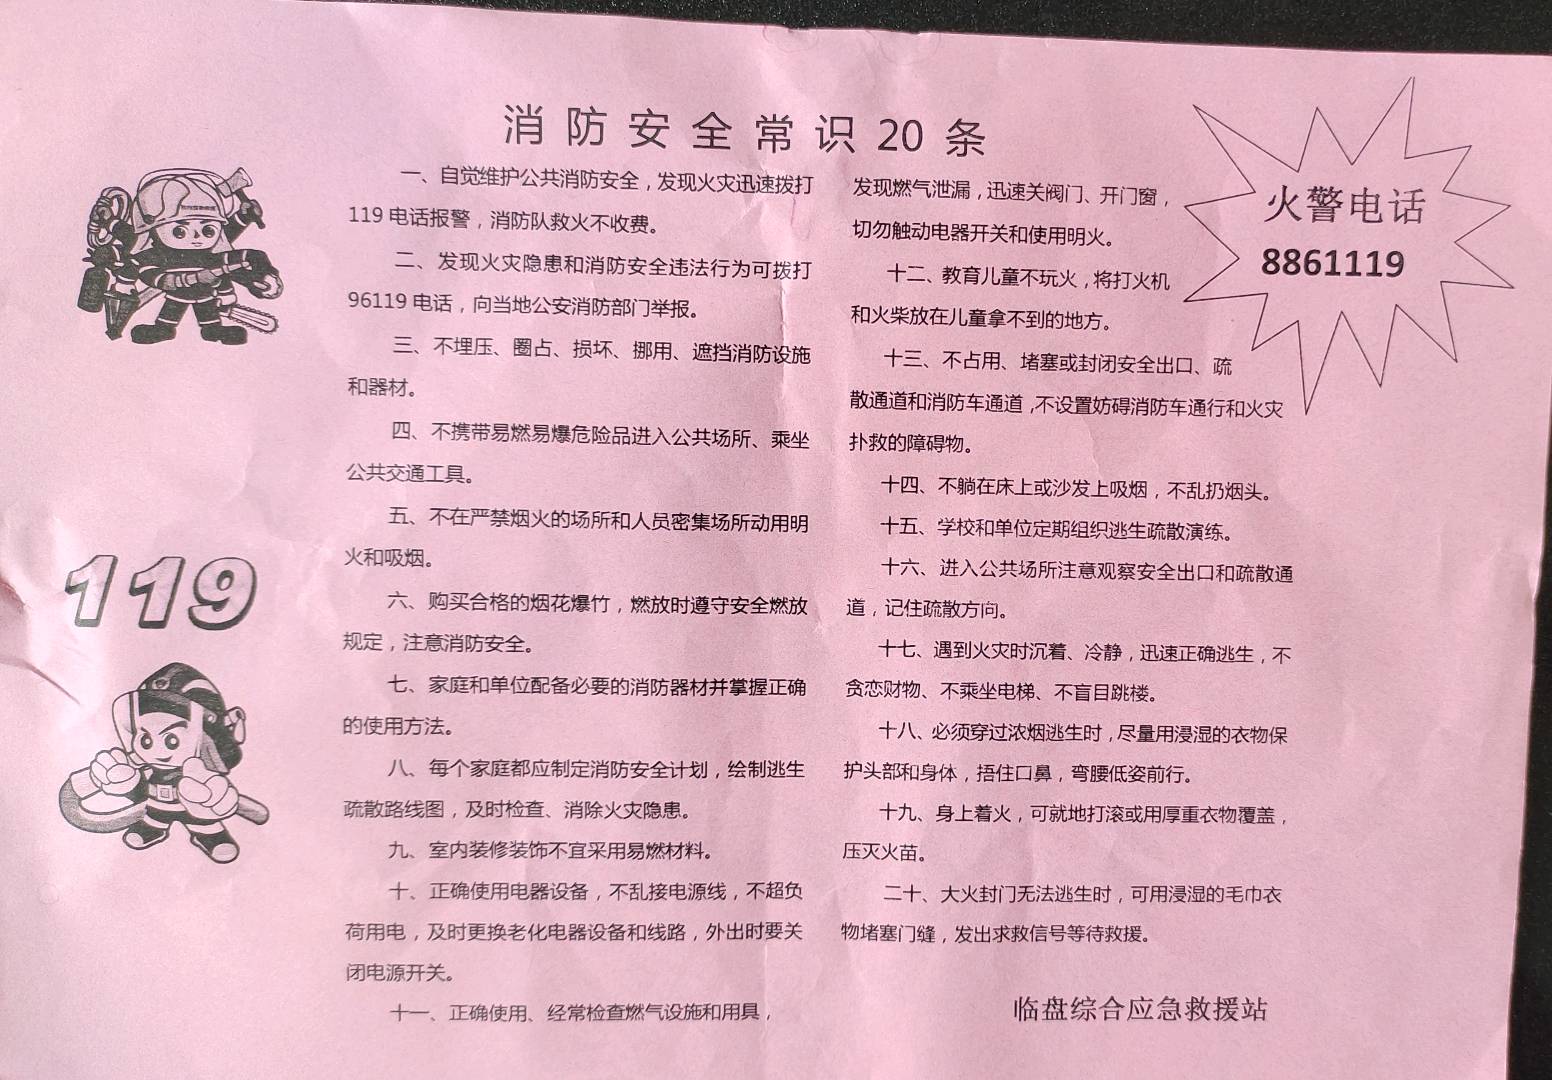 消防安全常识20条
一、自觉维护公共消防安全，发现火灾迅速拨打
119电话报警，消防队救火不收费。
二、发现火灾隐患和消防安全违法行为可拨打
96119电话，向当地公安消防部门举报。
三、不埋压、圈占、损坏、挪用、遮挡消防设施
和器材。
四、不携带易燃易爆危险品进入公共场所、乘坐
公共交通工具。
五、不在严禁烟火的场所和人员密集场所动用明
火和吸烟。
六、购买合格的烟花爆竹，燃放时遵守安全燃放
规定，注意消防安全。
七、家庭和单位配备必要的消防器材并掌握正确
的使用方法。
八、每个家庭都应制定消防安全计划，绘制逃生
疏散路线图，及时检查、消除火灾隐患。
九、室内装修装饰不宜采用易燃材料。
十、正确使用电器设备，不乱接电源线，不超负
荷用电，及时更换老化电器设备和线路，外出时要关
闭电源开关。
十一、正确使用、经常检查燃气设施和用具，
发现燃气泄漏，迅速关阀门、开门窗，
切勿触动电器开关和使用明火。
十二、教育儿童不玩火，将打火机
和火柴放在儿童拿不到的地方。
十三、不占用、堵塞或封闭安全出口、疏
散通道和消防车通道，不设置妨碍消防车通行和火灾
扑救的障碍物。
十四、不躺在床上或沙发上吸烟，不乱扔烟头。
十五、学校和单位定期组织逃生疏散演练。
十六、进入公共场所注意观察安全出口和疏散通
道，记住疏散方向。
十七、遇到火灾时沉着、冷静，迅速正确逃生，不
贪恋财物、不乘坐电梯、不盲目跳楼。
十八、必须穿过浓烟逃生时，尽量用浸湿的衣物保
护头部和身体，捂住口鼻，弯腰低姿前行。
十九、身上着火，可就地打滚或用厚重衣物覆盖，
压灭火苗。
二十、大火封门无法逃生时，可用浸湿的毛巾衣
物堵塞门缝，发出求救信号等待救援。
临盘综合应急救援站
火警电话
8861119
119